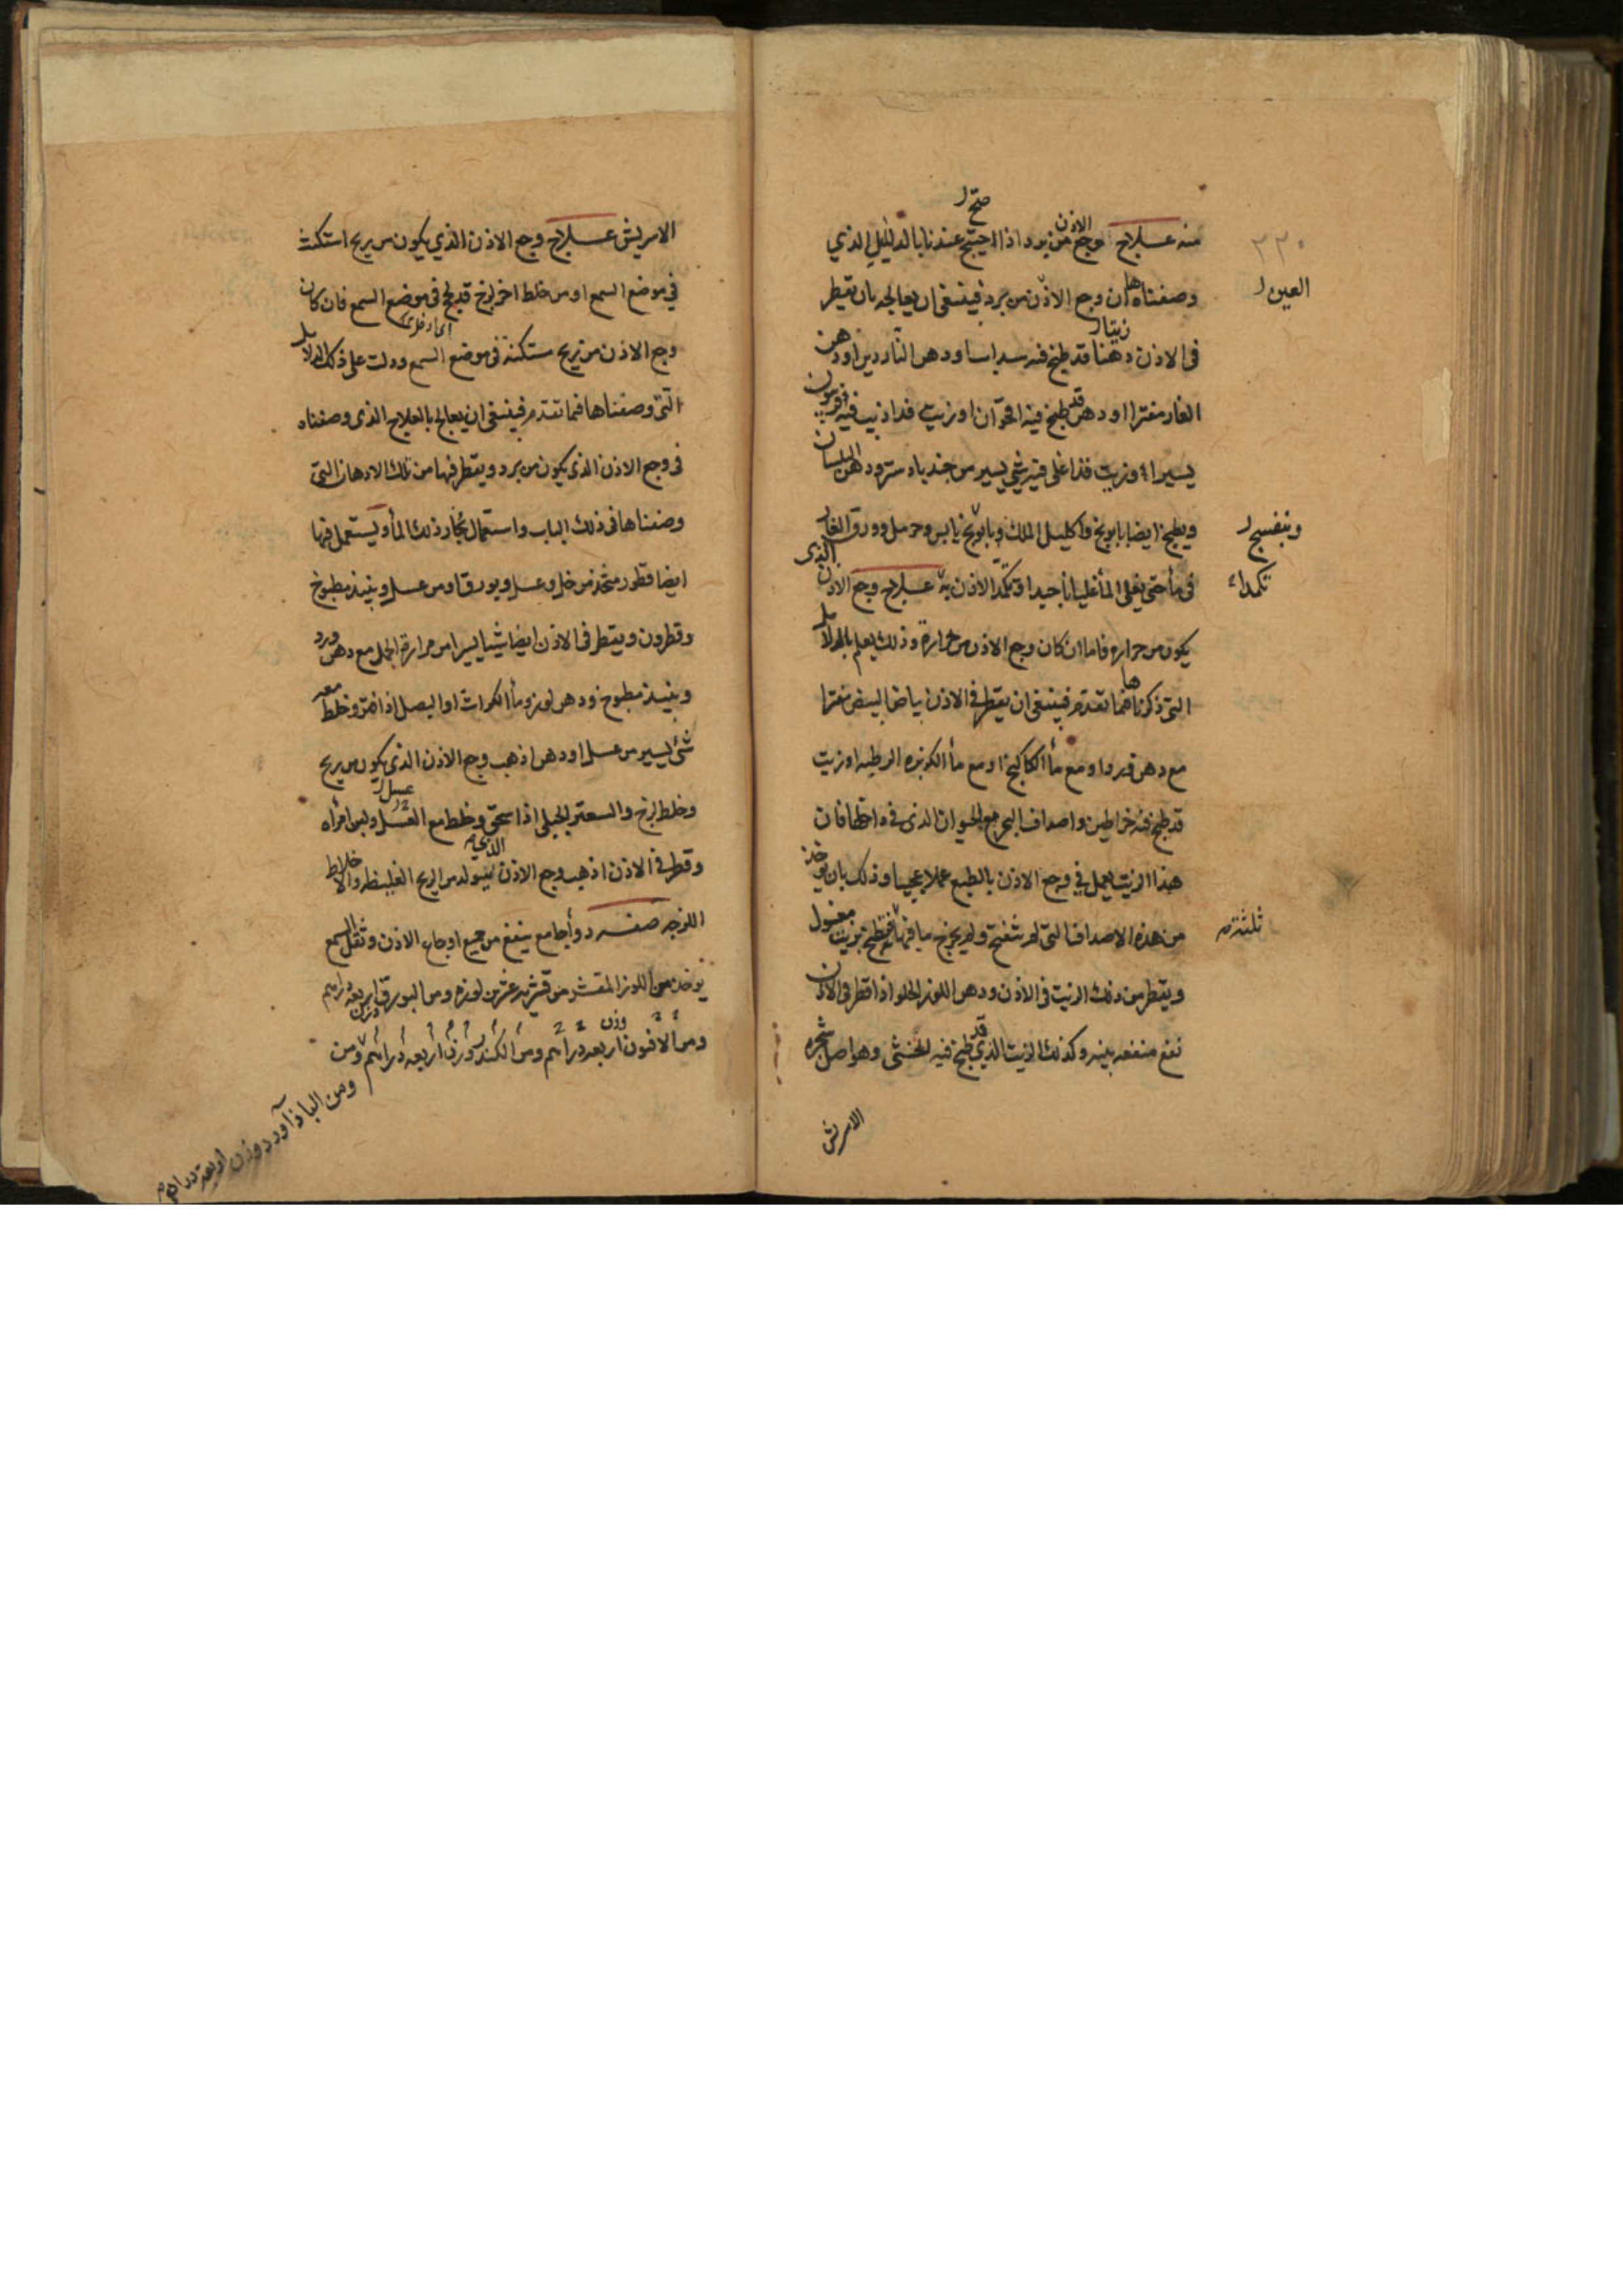 منه علاج وجع الاذن من برد اذا صح عندنا بالدليل الذي
وصفناها ان وجع الاذن من برد فينبغى ان يعالجه بان تقطر
فى الاذن دهنا قد طبخ فيه سداب او دهن الناردين او دهن
الغار مفترا او دهن قد طبخ فيه اقحوان او زيت قد اذيب فيه فربيون
يسيرا او زيت قد اغلى فيه شى يسير من جندبادستر ودهن البلسان
ويطبخ ايضا بابونج واكليل الملك يابس وحرمل وورق الغار
فى مأ حتى يغلى المأ غليانا جيدا وتكمد الاذن به علاج وجع الاذن الذى
يكون من حراره فاما ان كان وجع الاذن من حرارة وذلك يعلم بالدلايل
التى ذكرناها فيما تقدم فينبغى ان يقطر فى الاذن بياض البيض مفترا
مع دهن ورد او مع مأ الكاكنج او مع مأ الكزبره الرطبه او زيت
قد طبخ فيه خراطين واصداف البحر مع الحيوان الذى فى داخلها فان
هذا الزيت يعمل فى وجع الاذن بالطبع عملا عجيبا وذلك بان يوخذ
من هذه الاصداف التى لم تنفتح ولم يخرج ما فيها فتطبخ بزيت مغسول
ويقطر من ذلك الزيت فى الاذن ودهن اللوز الحلو اذا قطر فى الاذن
نفع منفعه بينه وكذلك الزيت الذي قد طبخ فيه الخنثى وهو اصل شجره
الاسريش
٢٢٠
وبنفسج
الاسريش علاج وجع الاذن الذي يكون من ريح استكنت
في موضع السمع او من خلط اخر لزج قد لحج فى موضع السمع فان كان
وجع الاذن من ريح مستكنة فى موضع السمع ودلت على ذلك الدلايل
التى وصفناها فيما تقدم فينبغى ان يعالج بالعلاج الذى وصفناه
فى وجع الاذن الذى يكون من برد ويقطر فيها من تلك الادهان التى
وصفناها فى ذلك الباب واستعمال بخار ذلك المأ ويستعمل فيها
ايضا قطور متخذ من خل وعسل وبورق او من عسل ونبيذ مطبوخ
وقطرون ويقطر فى الاذن ايضا شيا يسيرا من مرارة الجمل مع دهن ورد
ونبيذ مطبوخ ودهن لوز ومأ الكراث او البصل اذا فتر وخلط معه
شئ يسير من عسل او دهن اذهب وجع الاذن الذى يكون من ريح
وخلط لزج والسعتر الجبلى اذا سحق وخلط مع العسل ولبن امرأه
وقطر فى الاذن اذهب وجع الاذن الذي يتولد من الريح الغليظه والاخلاط
اللزجه صفة دوأ جامع ينفع من جميع اوجاع الاذن وثقل السمع
يوخذ من اللوز المقشر من قشره عشرين لوزه ومن البورق وزن اربعه دراهم
ومن الافيون وزن اربعه دراهم ومن الكندر وزن اربعه دراهم ومن
ومن الباذاورد وزن اربعة دراهم